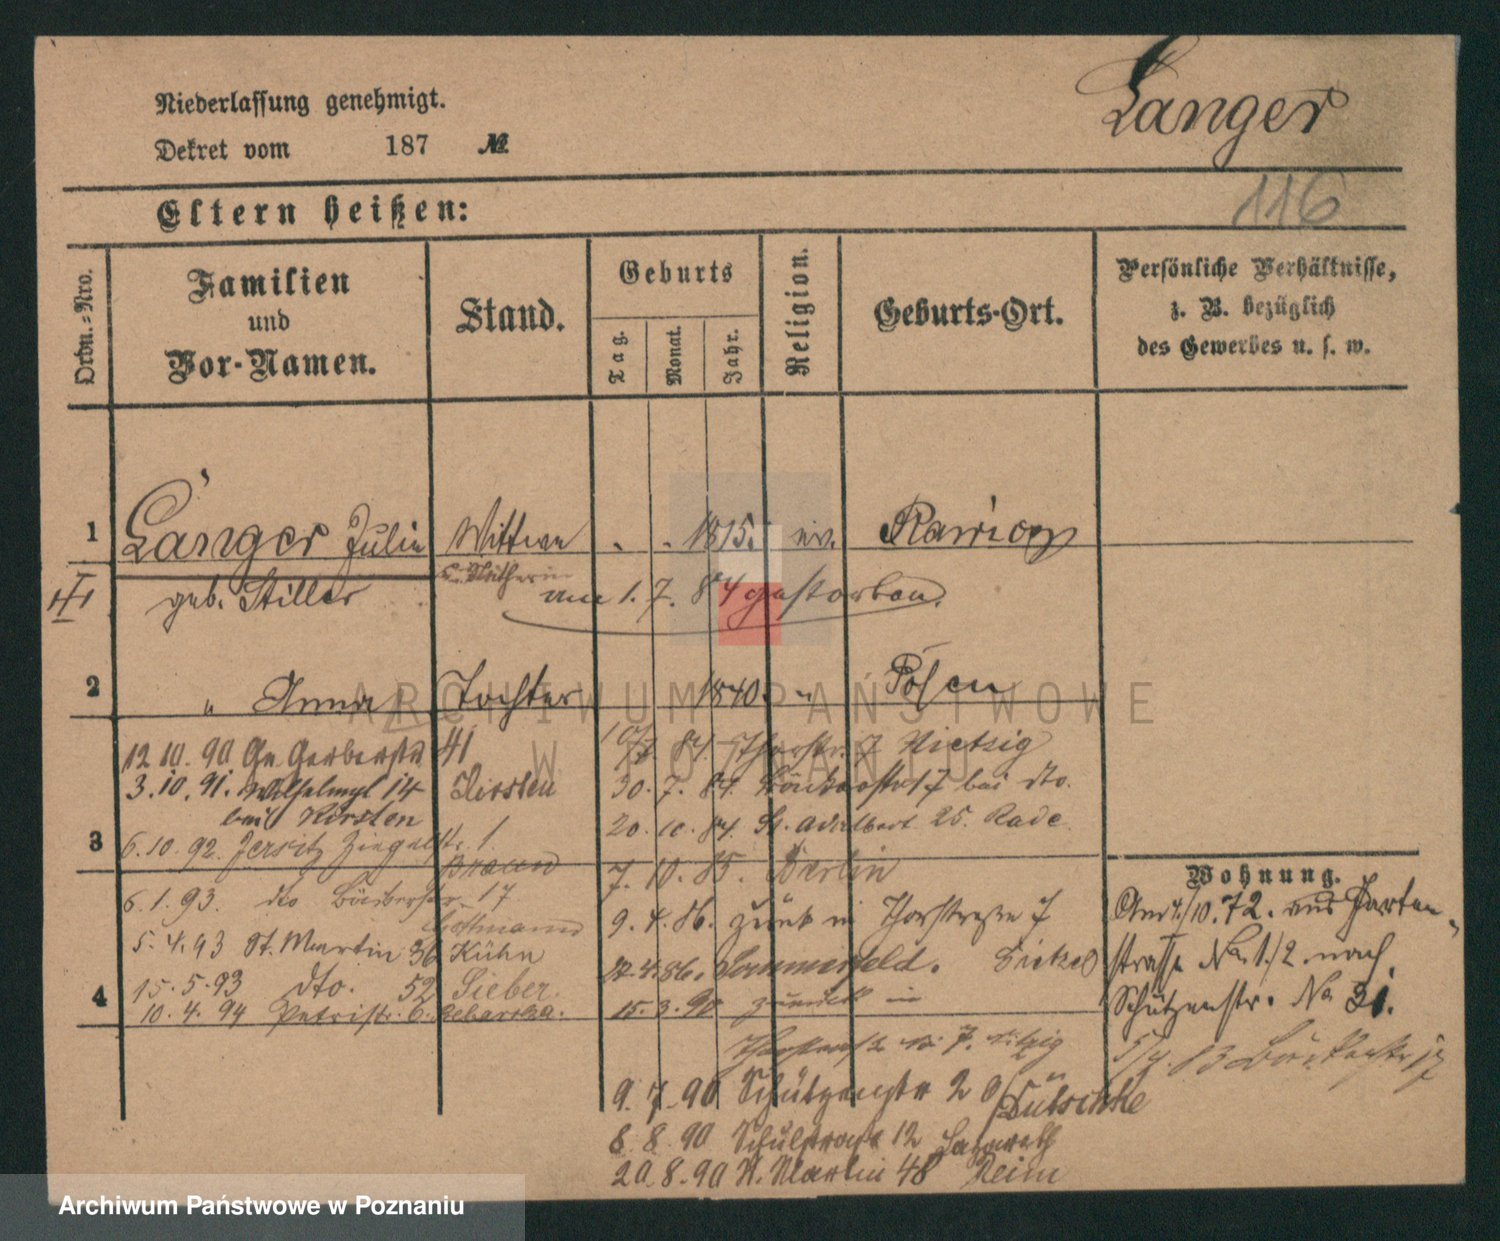 Niederlassung genehmigt.
Dekret vom 187 №
Langer
116
Eltern heißen:
Ordn.-Nro.
Familien
und
Vor-Namen.
Stand.
Geburts
Tag.
Monat.
Jahr.
Religion.
Geburts-Ort.
Persönliche Verhältnisse,
z. B. bezüglich
des Gewerbes u. s. w.
1 Langer Julie Wittwe 1815. ev. Rawicz
geb. Stiller am 1. 7. 84 gestorben.
2 " Anna Tochter 1840. " Posen
12 10. 90 Gr. Gerberstr 41
3. 10. 91. Wilhelmpl 14 Kirsten
bei Kirsten
3
6. 10. 92. Jersitz Ziegelstr. 1.
Braun
6. 1. 93. dto
5. 4. 93 St. Martin 36 Kühn
15. 5. 93 dto. 52 Sieber.
4
10. 4. 94 Petristr. 6. Rebarska.
84. Thorstr. 7 Nietzig
30. 7. 84. Bäckerstr 7 bei dto.
20. 10. 84. St. Adalbert 25. Rade
7. 10. 85. Berlin
9. 4. 86. zurück in Thorstrasse 7
86. Sommerfeld.
15. 3. 90 zurück in
9. 7. 90 Schützenstr 20 Lütschke
8. 8. 90 Schulstrasse 12
20. 8. 90 St. Martin 48 Reim
Wohnung.
Am 4/10. 72. aus Garten-
strasse No. 1/2 nach
Schützenstr. No 31.
ARCHIWUM PAŃSTWOWE
W POZNANIU
Archiwum Państwowe w Poznaniu